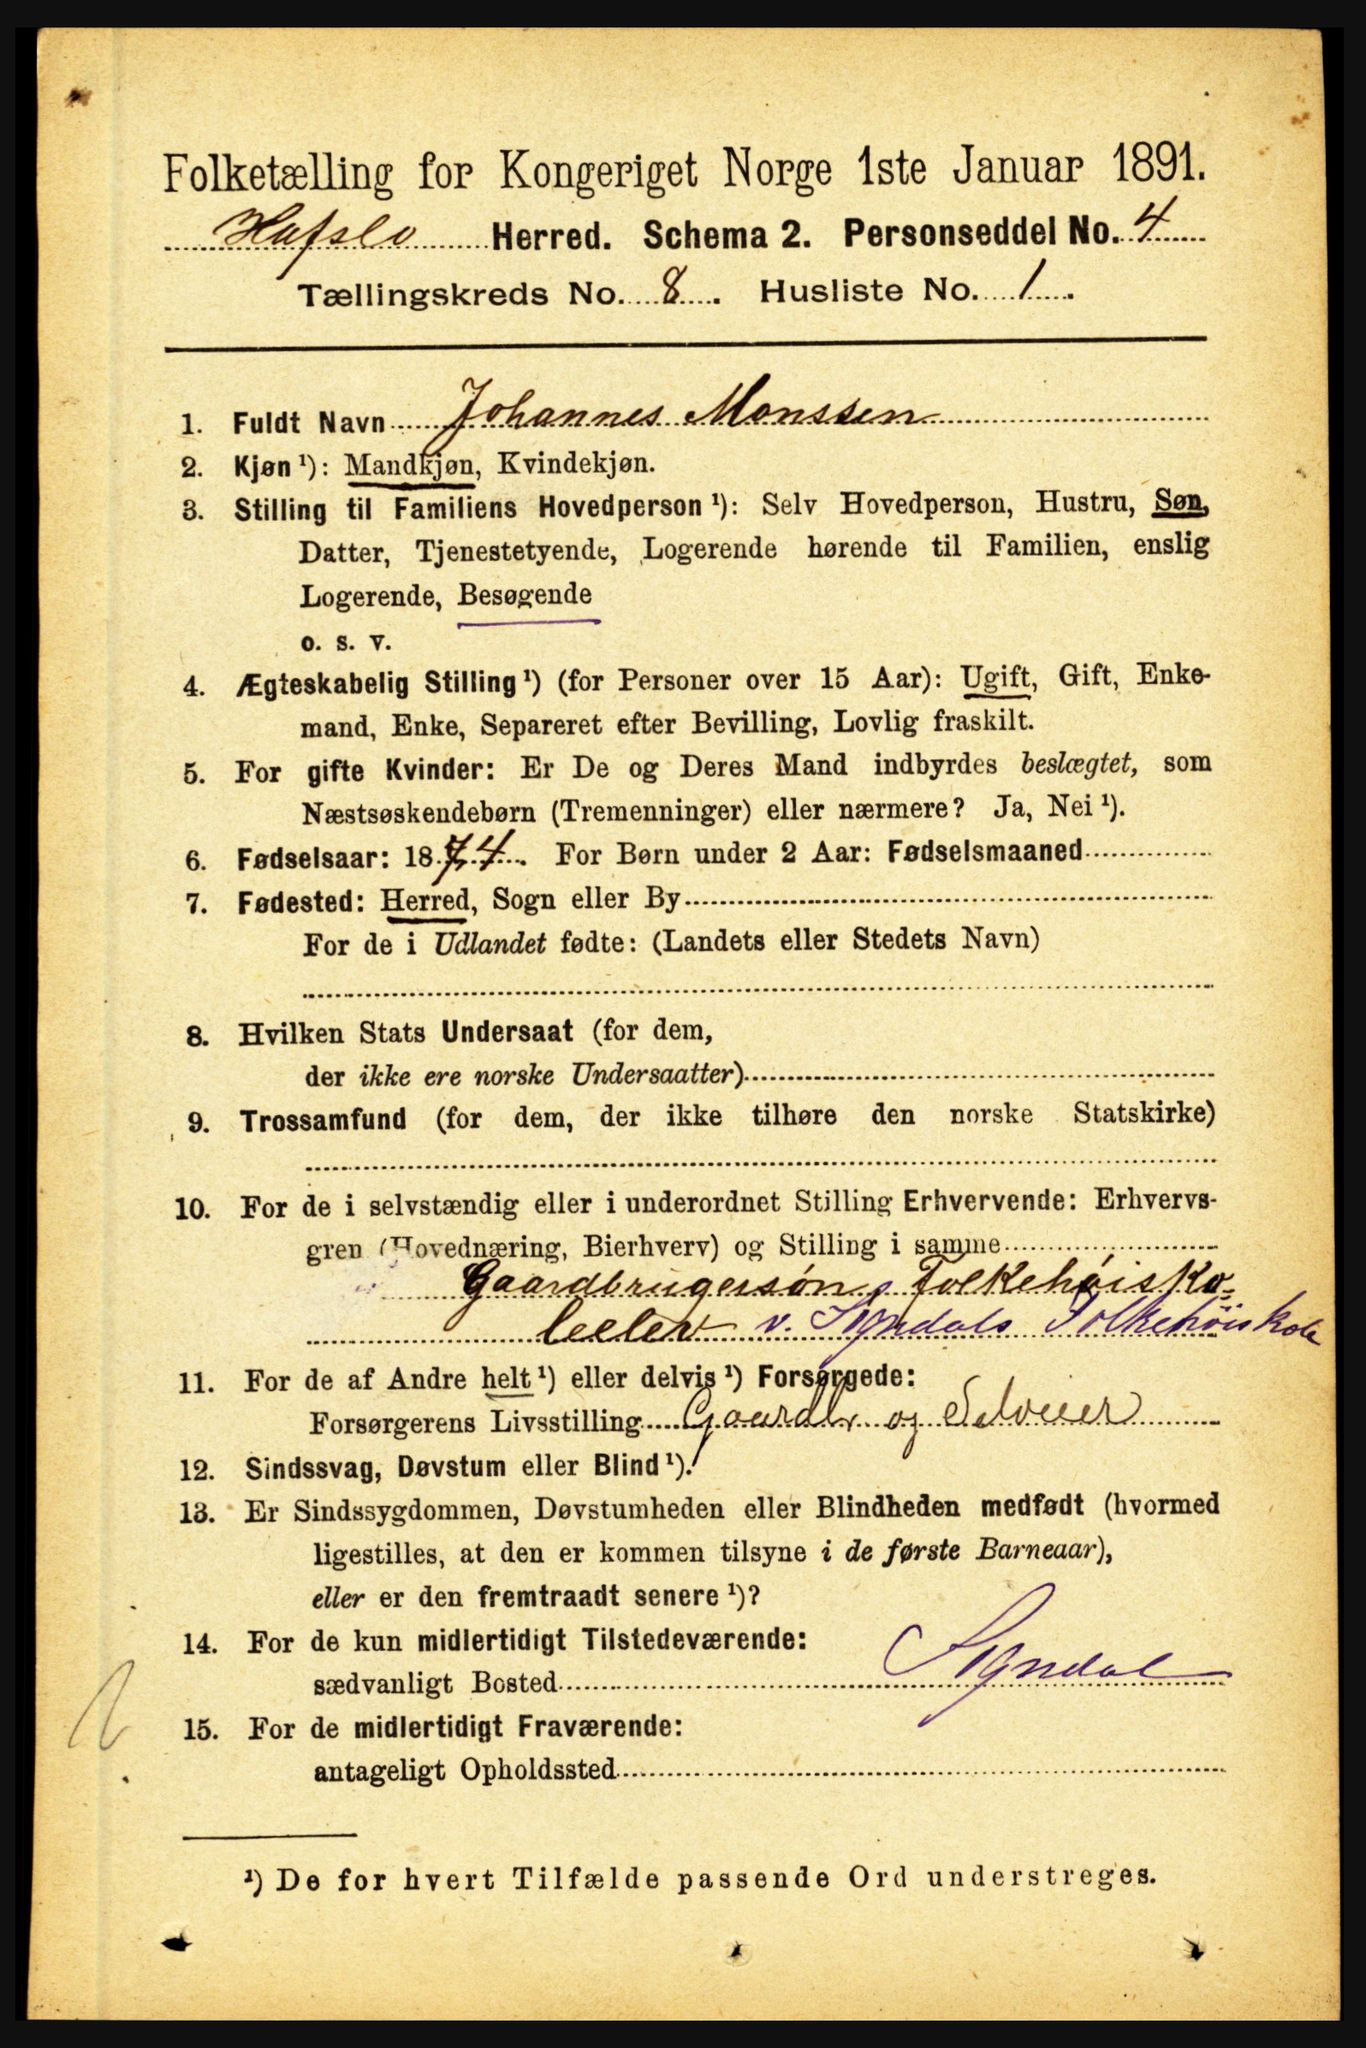 Folketælling for Kongeriget Norge 1ste Januar 1891.
Hafslo Herred. Schema 2. Personseddel No. 4
Tællingskreds No. 8. Husliste No. 1.
1. Fuldt Navn Johannes Monssen
2. Kjøn ¹): Mandkjøn, Kvindekjøn.
3. Stilling til Familiens Hovedperson ¹): Selv Hovedperson, Hustru, Søn,
Datter, Tjenestetyende, Logerende hørende til Familien, enslig
Logerende, Besøgende
o. s. v.
4. Ægteskabelig Stilling ¹) (for Personer over 15 Aar): Ugift, Gift, Enke-
mand, Enke, Separeret efter Bevilling, Lovlig fraskilt.
5. For gifte Kvinder: Er De og Deres Mand indbyrdes beslægtet, som
Næstsøskendebørn (Tremenninger) eller nærmere? Ja, Nei ¹).
6. Fødselsaar: 1874. For Børn under 2 Aar: Fødselsmaaned
7. Fødested: Herred, Sogn eller By
For de i Udlandet fødte: (Landets eller Stedets Navn)
8. Hvilken Stats Undersaat (for dem,
der ikke ere norske Undersaatter)
9. Trossamfund (for dem, der ikke tilhøre den norske Statskirke)
10. For de i selvstændig eller i underordnet Stilling Erhvervende: Erhvervs-
gren (Hovednæring, Bierhverv) og Stilling i samme
Gaardbrugersøn, Folkehøisko-
leelev v. Sogndals Folkehöiskole
11. For de af Andre helt ¹) eller delvis ¹) Forsørgede:
Forsørgerens Livsstilling Gaardbr og Selveier
12. Sindssvag, Døvstum eller Blind ¹).
13. Er Sindssygdommen, Døvstumheden eller Blindheden medfødt (hvormed
ligestilles, at den er kommen tilsyne i de første Barneaar),
eller er den fremtraadt senere ¹)?
14. For de kun midlertidigt Tilstedeværende:
sædvanligt Bosted Sogndal
15. For de midlertidigt Fraværende:
antageligt Opholdssted
¹) De for hvert Tilfælde passende Ord understreges.